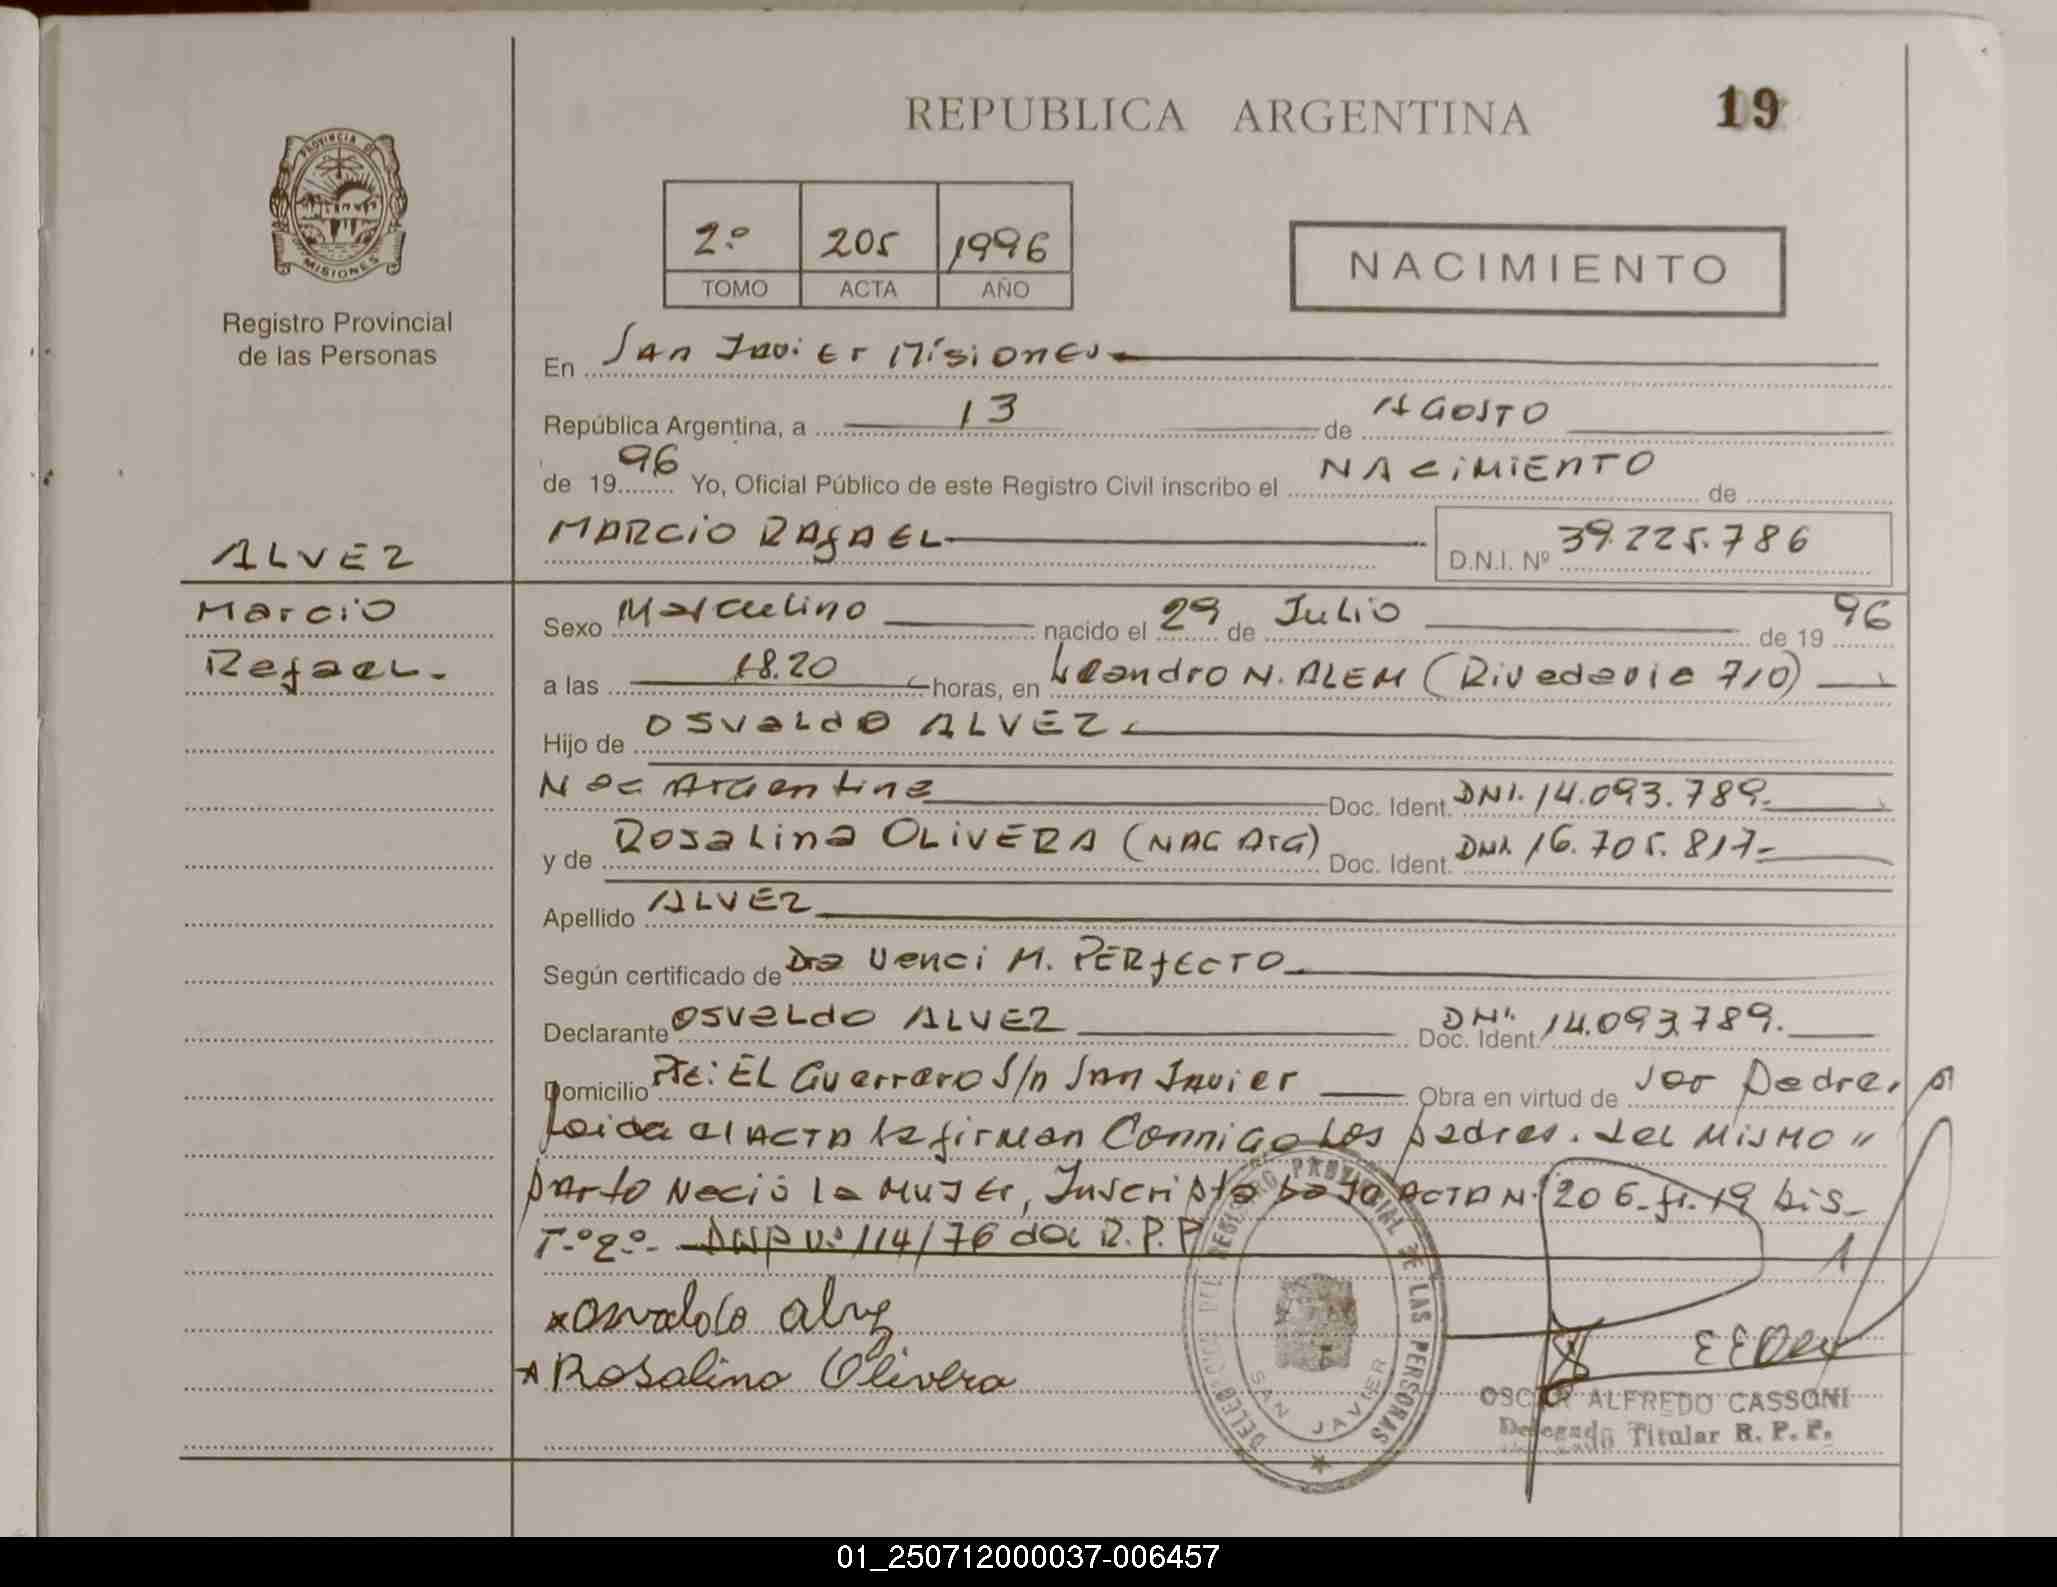 REPUBLICA ARGENTINA
19
PROVINCIA DE
MISIONES
Registro Provincial
de las Personas
2º 205 1996
TOMO ACTA AÑO
NACIMIENTO
En San Javier Misiones
República Argentina, a 13 de AGOSTO
de 1996 Yo, Oficial Público de este Registro Civil inscribo el NACIMIENTO de
MARCIO RAfAEL D.N.I. Nº 39.225.786
ALVEZ
Marcio
Rafael.
Sexo Masculino nacido el 29 de Julio de 1996
a las 18.20 horas, en Leandro N. ALEM (Rivadavia 710)
Hijo de Osvaldo ALVEZ
Nac Argentina Doc. Ident. DNI. 14.093.789.
y de Rosalina OLIVERA (NAC Arg) Doc. Ident. DNI. 16.705.817-
Apellido ALVEZ
Según certificado de Dra M. PERfECTO
Declarante Osvaldo ALVEZ Doc. Ident. DNI. 14.093.789.
Domicilio EL Guerrero S/n San Javier Obra en virtud de ser Padre,
Leida el ACTA la firman Conmigo Los padres. del MisMO "
parto Nació la Mujer, Inscripta bajo ACTA N. 206-fº.19 bis-
Tº2º- DNP Nº 114/76 del R.P.P
Osvaldo alvez
Rosalina Olivera
DELEGACION DEL REGISTRO PROVINCIAL DE LAS PERSONAS
SAN JAVIER
OSCAR ALFREDO CASSONI
Delegado Titular R. P. P.
01_250712000037-006457